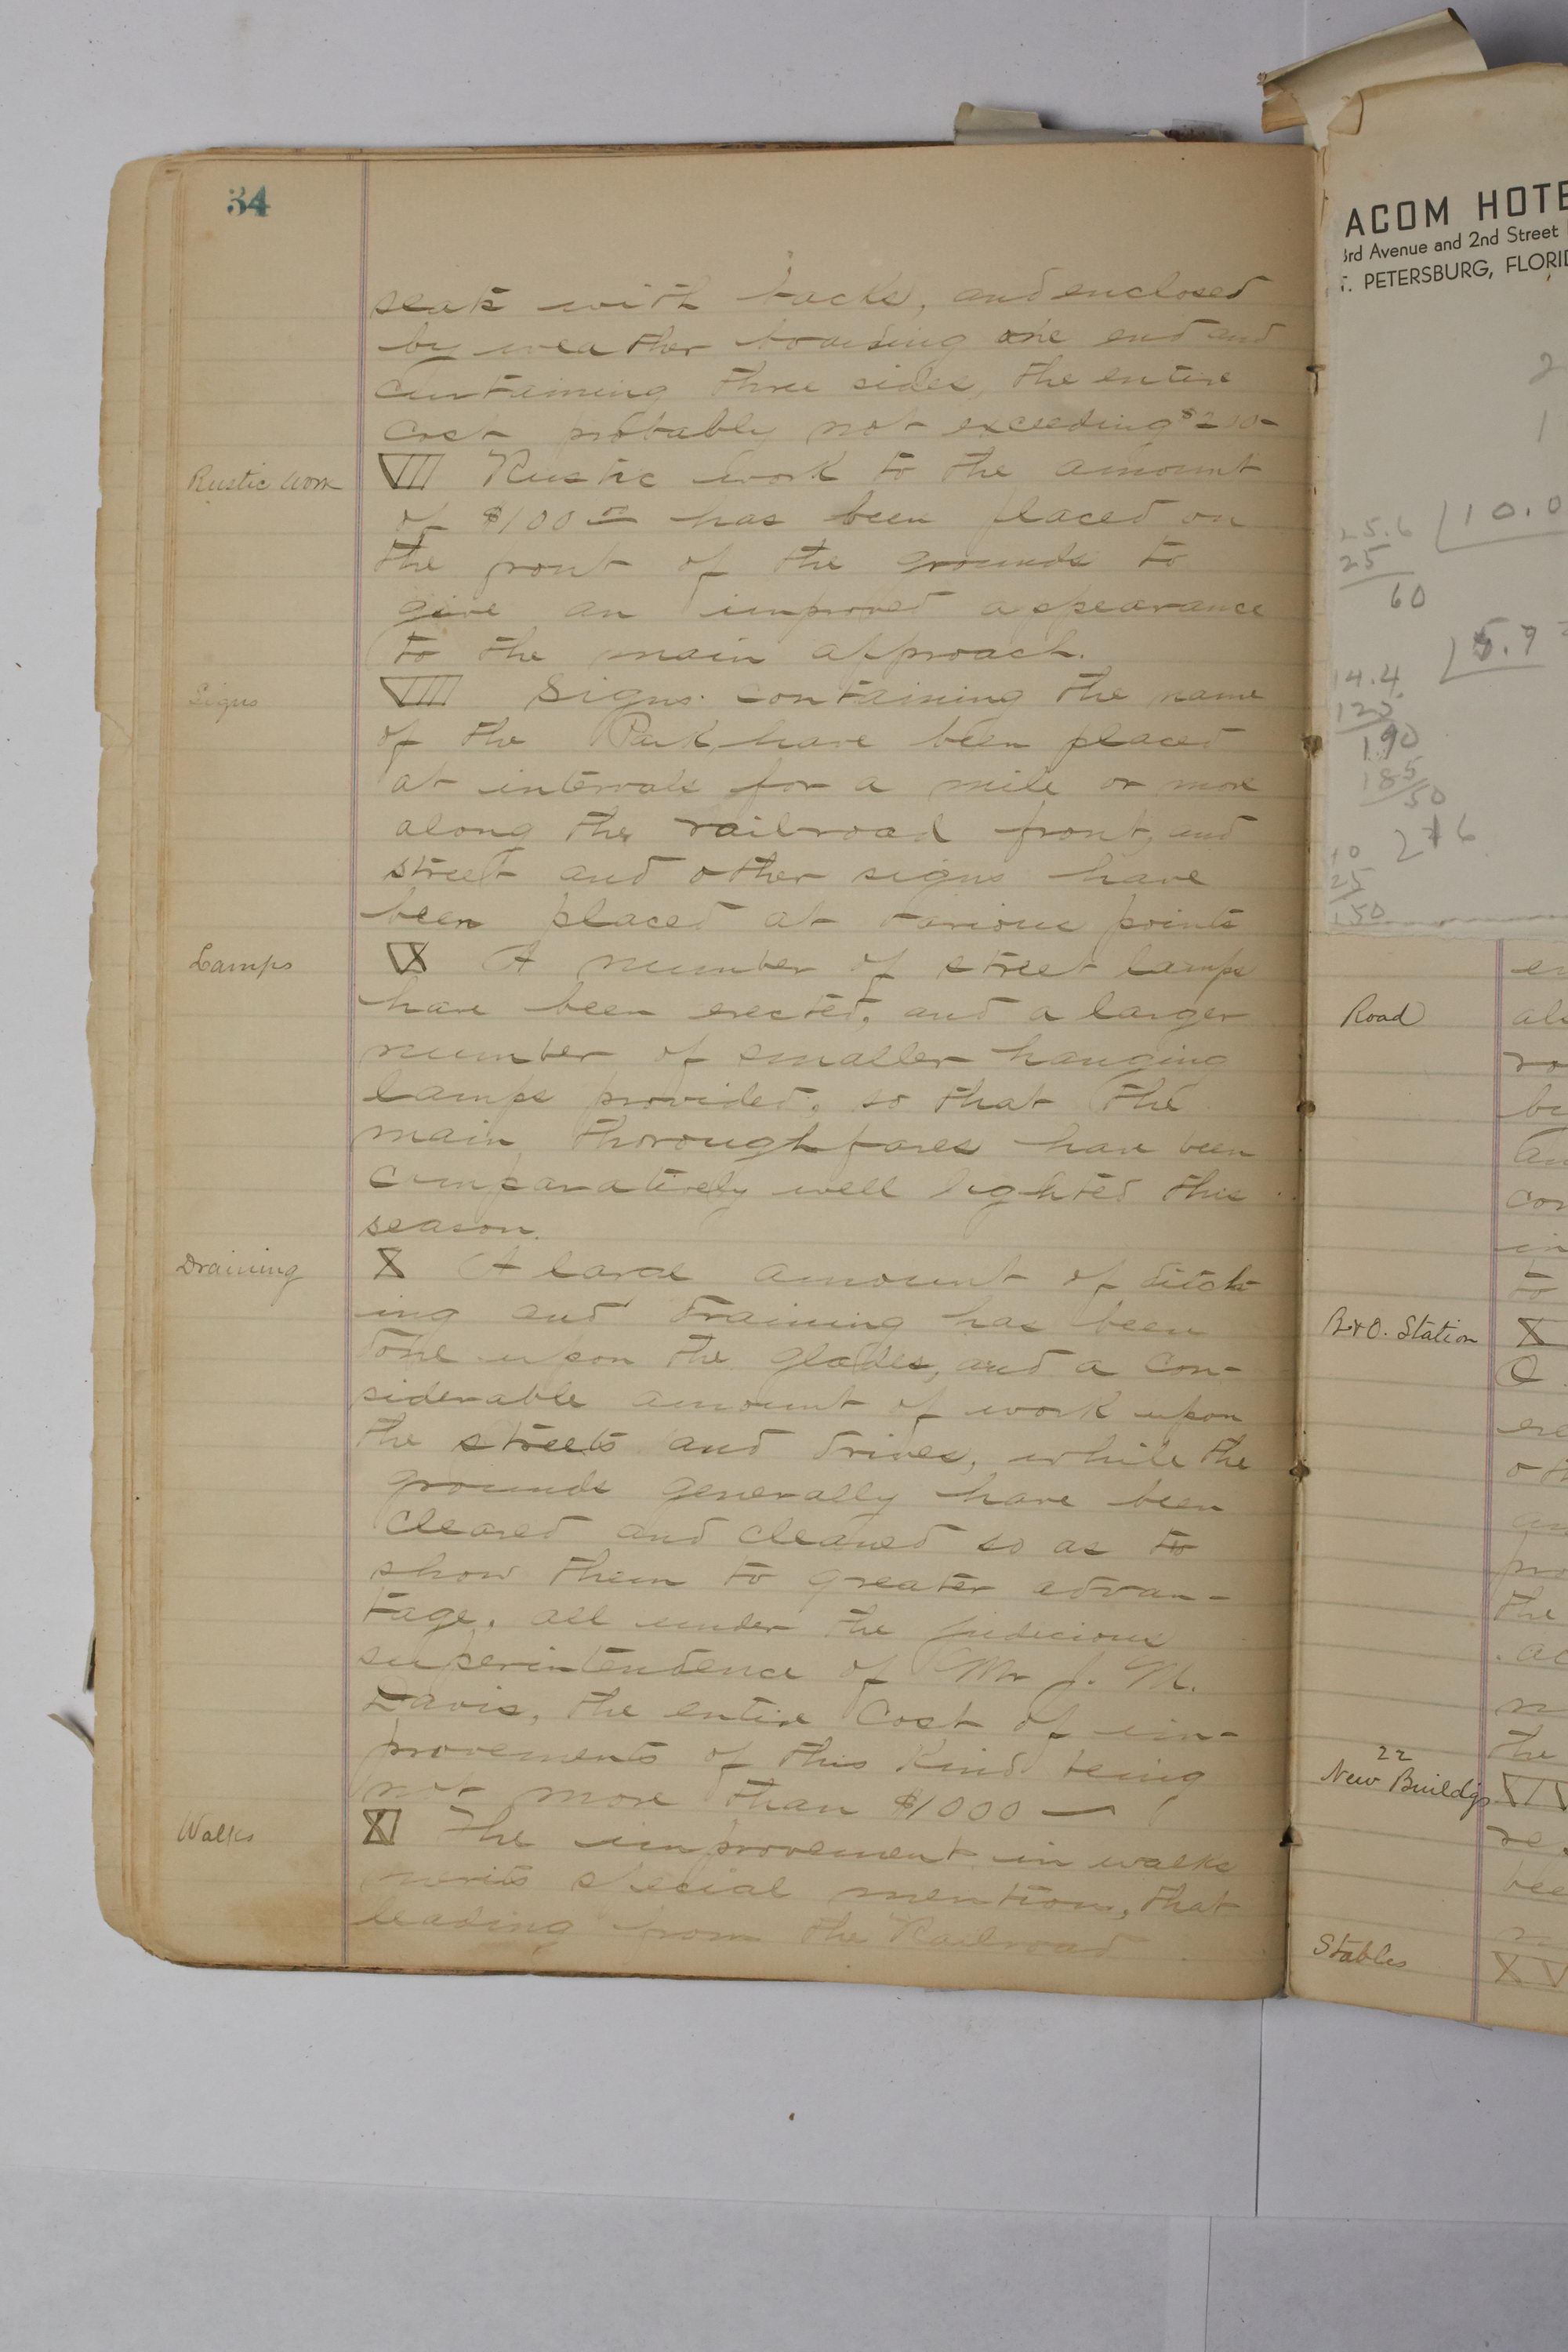 34
seats with backs, and enclosed
by weather boarding one end and
curtaining three sides, the entire
cost probably not exceeding $200-
Rustic Work
VII Rustic work to the amount
of $100 - has been placed on
the front of the grounds to
give an improved appearance
to the main approach.
Signs
VIII Signs containing the name
of the Park have been placed
at intervals for a mile or more
along the railroad front, and
street and other signs have
been placed at various points
Lamps
IX A number of street lamps
have been erected, and a larger
number of smaller hanging
lamps provided, so that the
main thoroughfares have been
comparatively well lighted this
season.
Draining
X A large amount of ditch-
ing and draining has been
done upon the glades, and a con-
siderable amount of work upon
the streets and drives, while the
grounds generally have been
cleared and cleaned so as to
show them to greater advan-
tage, all under the judicious
superintendence of Mr J. M.
Davis, the entire cost of im-
provements of this kind being
not more than $1000 -
Walks
XI The improvement in walks
merits special mention, that
leading from the Railroad
ACOM HOTE
3rd Avenue and 2nd Street
T. PETERSBURG, FLORID
2
1
25.6 10.0
25
60
5.7
14.4
125
190
185
50
276
10
25
150
Road
B. & O. Station
X
O
22
New Buildgs
the
Stables
XV